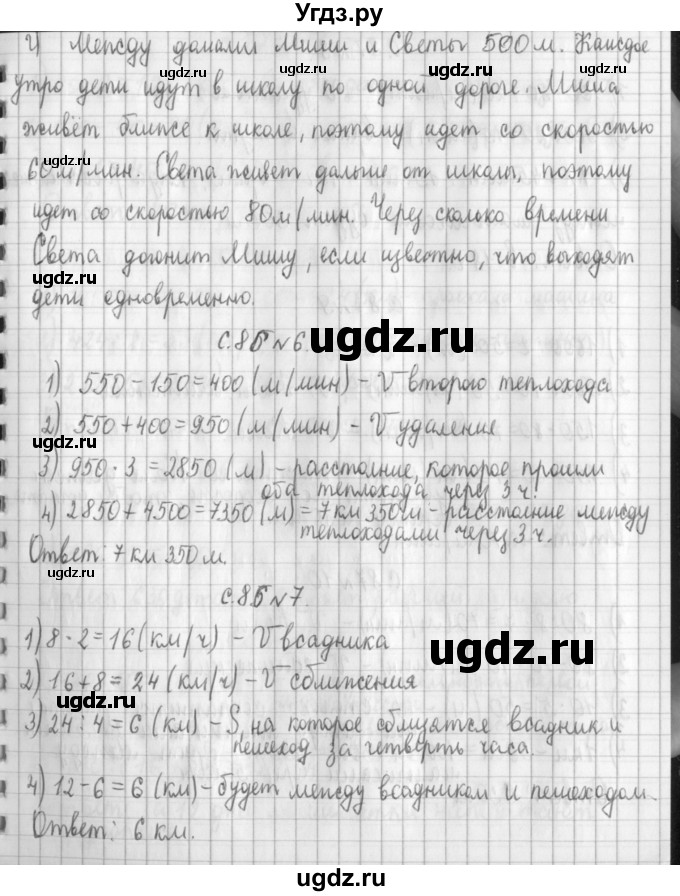 Угдз.ру
г) Между домами Миши и Светы 500 м. Каждое
утро дети идут в школу по одной дороге. Миша
живёт ближе к школе, поэтому идет со скоростью
60 м/мин. Света живет дальше от школы, поэтому
идет со скоростью 80 м/мин. Через сколько времени
Света догонит Мишу, если известно, что выходят
дети одновременно.
с.85 №6.
1) 550-150=400 (м/мин) - V второго теплохода
2) 550+400=950 (м/мин) - V удаление
3) 950·3=2850 (м) - расстояние, которое прошли
оба теплохода через 3 ч.
4) 2850+4500=7350 (м) = 7 км 350 м - расстояние между
теплоходами через 3 ч.
Ответ: 7 км 350 м.
с.85 №7.
1) 8·2=16 (км/ч) - V всадника
2) 16+8=24 (км/ч) - V сближения
3) 24:4=6 (км) - S, на которое сблизятся всадник и
пешеход за четверть часа.
4) 12-6=6 (км) - будет между всадником и пешеходом.
Ответ: 6 км.
ugdz.ru
ugdz.ru
ugdz.ru
ugdz.ru
ugdz.ru
ugdz.ru
ugdz.ru
ugdz.ru
ugdz.ru
ugdz.ru
ugdz.ru
ugdz.ru
ugdz.ru
ugdz.ru